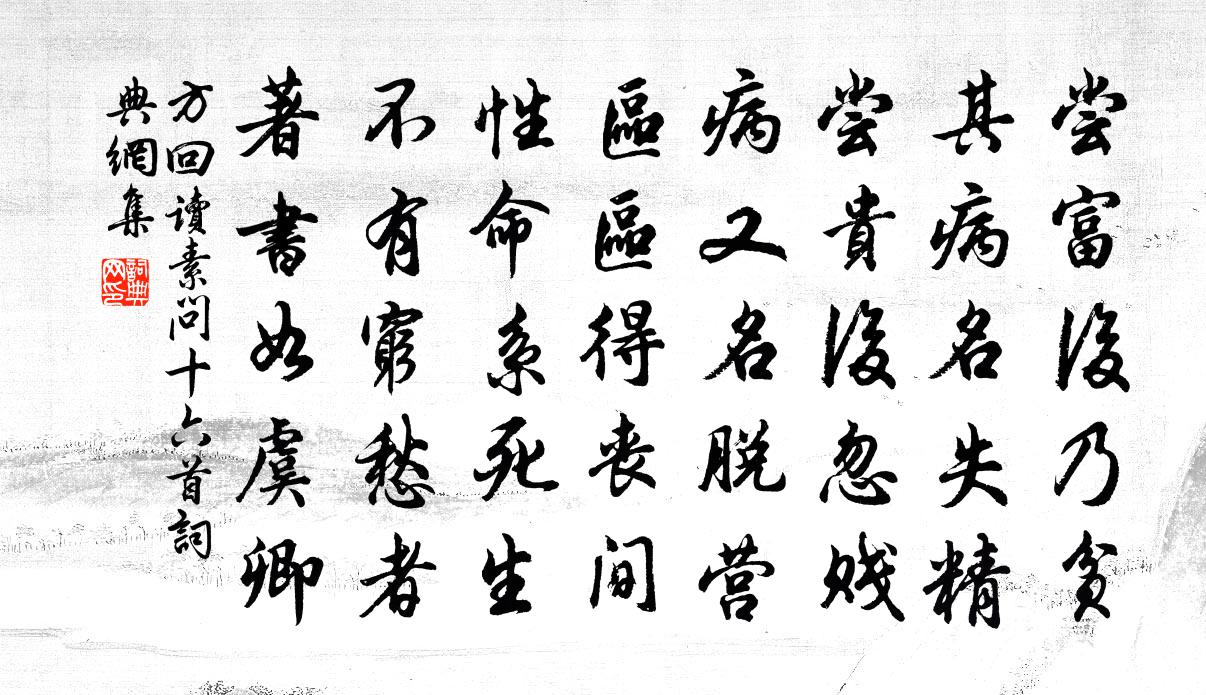 尝富後乃贫
其病名失精
尝貴後忽贱
病又名脱营
區區得丧间
性命系死生
不有窮愁者
著書如虞卿
方回讀素問十六首詞
典網集
詞典
网印